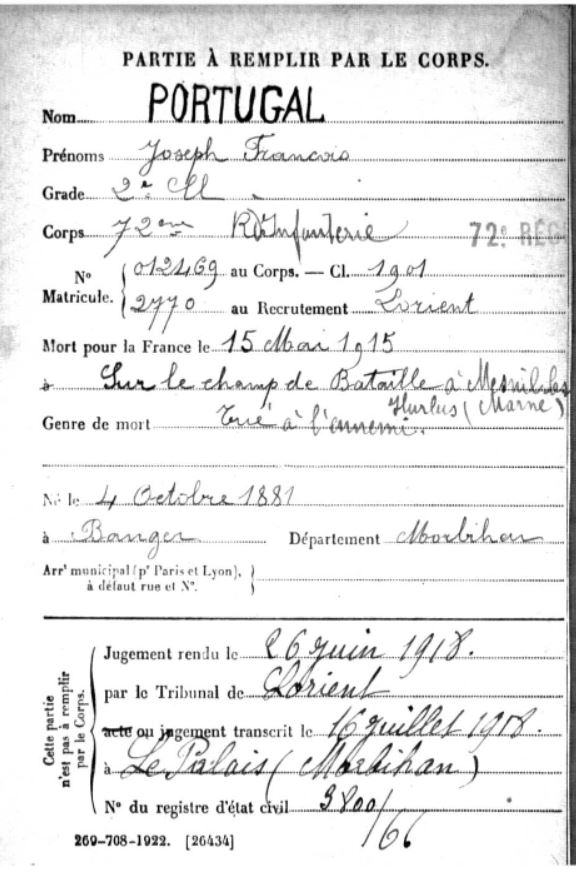 PARTIE À REMPLIR PAR LE CORPS.
Nom PORTUGAL
Prénoms Joseph Francois
Grade 2e Cl
Corps 72ème R d'Infanterie 72e RÉG
No Matricule. 012469 au Corps. — Cl. 1901
2770 au Recrutement Lorient
Mort pour la France le 15 Mai 1915
à Sur le champ de Bataille à Mesnil les
Hurlus (Marne)
Genre de mort Tué à l'ennemi.
Né le 4 Octobre 1881
à Bangor Département Morbihan
Arrt municipal (pr Paris et Lyon),
à défaut rue et No.
Cette partie n'est pas à remplir par le Corps.
Jugement rendu le 26 juin 1918.
par le Tribunal de Lorient
acte ou jugement transcrit le 16 juillet 1918.
à Le Palais (Morbihan)
No du registre d'état civil 9800/66
269-708-1922. [26434]